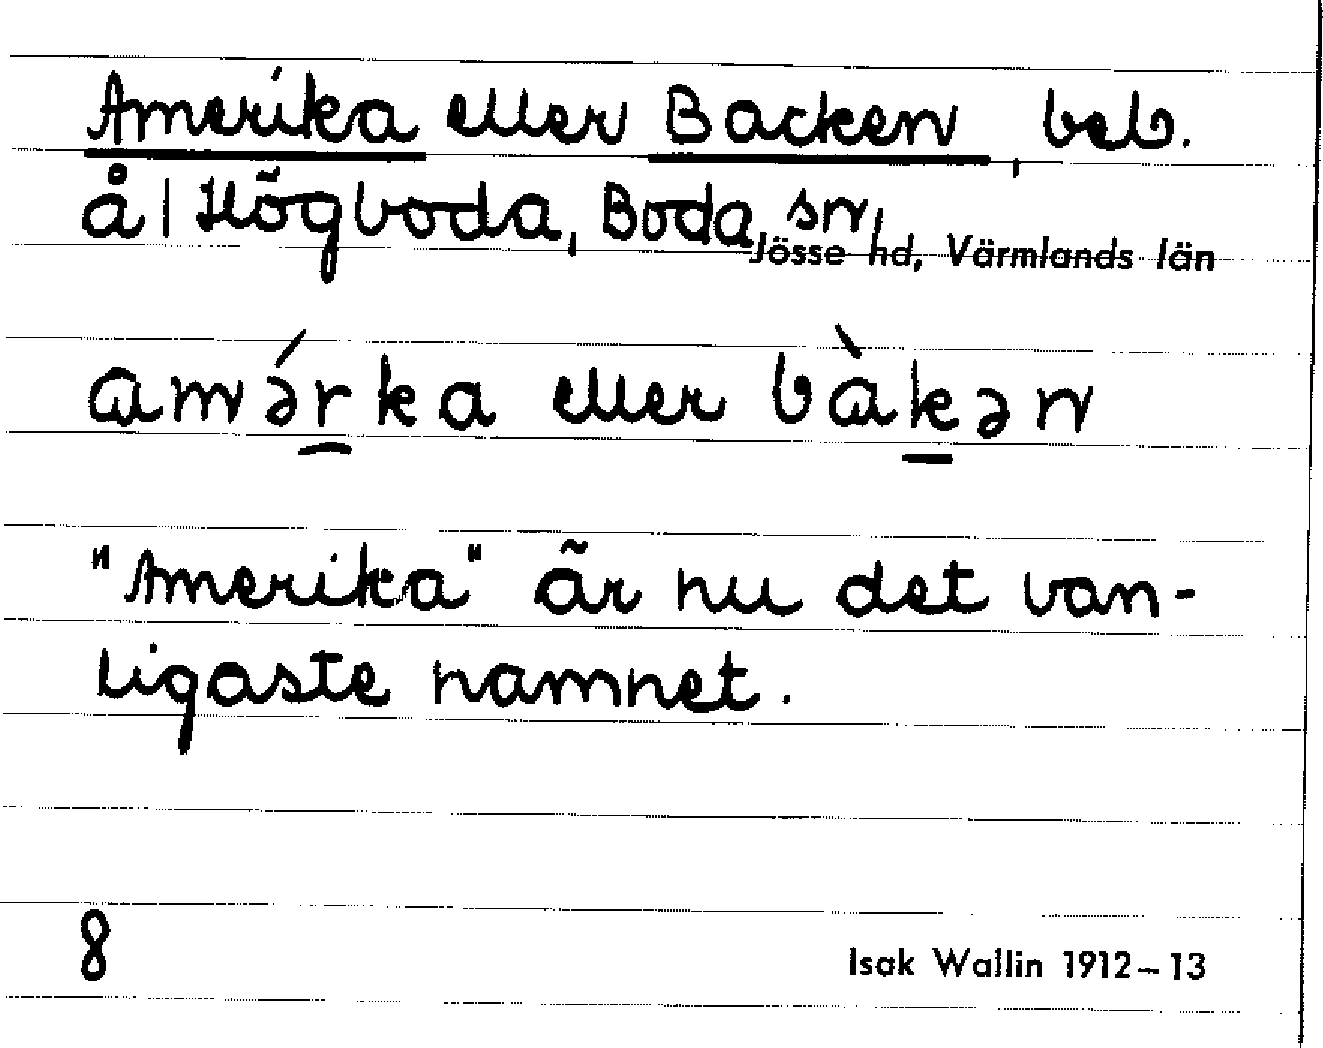 Amerika eller Backen, beb.
å/ Högboda, Boda sn,
Jösse hd, Värmlands län
amə́rka eller bàkən
"Amerika" är nu det van-
ligaste namnet.
8
Isak Wallin 1912-13